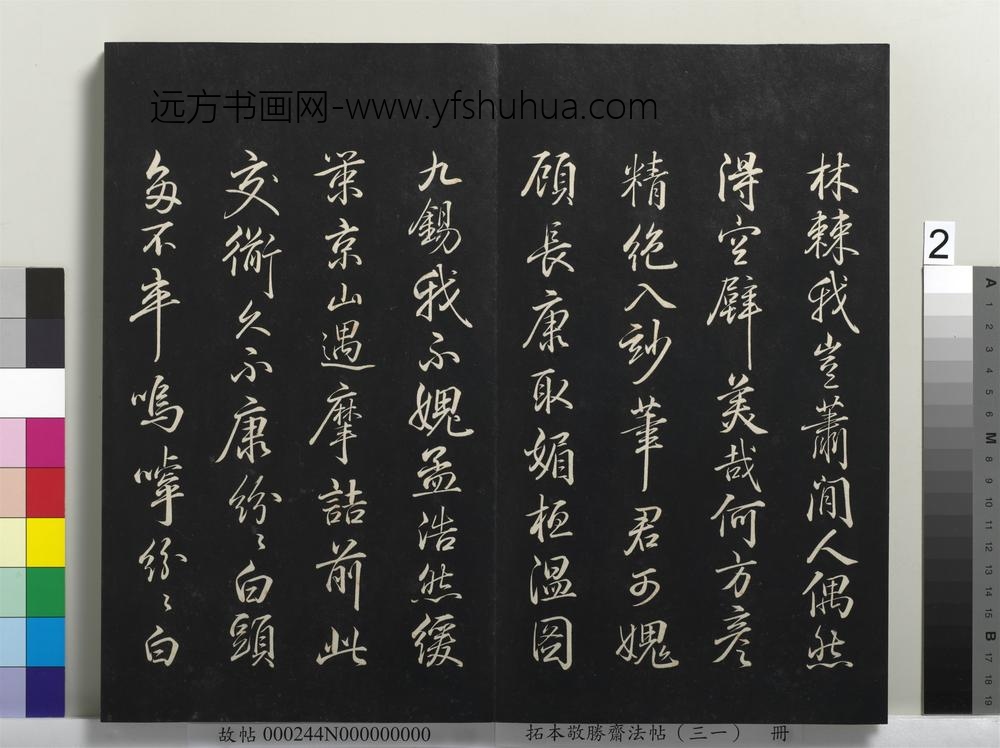 远方书画网-www.yfshuhua.com
林棘我豈蕭閒人偶然
得空壁美哉何方彥
精絕入妙筆君可媿
顧長康取媚桓溫圖
九錫我不媿孟浩然緩
業京山遇摩詰前此
交衢久不康紛〻白頭
多不率嗚嘷紛〻白
2
故帖000244N000000000
拓本敬勝齋法帖（三一） 冊
A
1
2
3
4
5
6
M
8
9
10
11
12
13
14
15
B
17
18
19